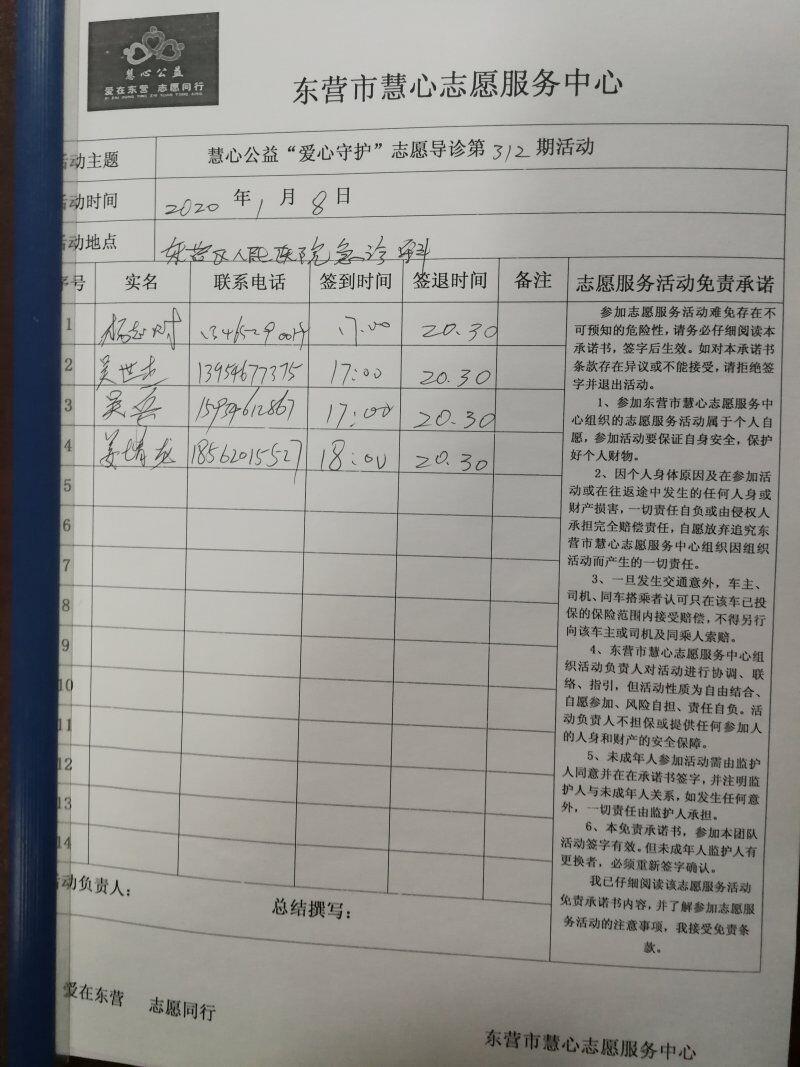 慧心公益
爱在东营 志愿同行
东营市慧心志愿服务中心
活动主题 慧心公益“爱心守护”志愿导诊第312期活动
活动时间 2020年1月8日
活动地点 东营区人民医院急诊科
序号 实名 联系电话 签到时间 签退时间 备注 志愿服务活动免责承诺
1 17:00 20.30
2 吴世杰 13954677375 17:00 20.30
3 15954612867 17:00 20.30
4 18562015527 18:00 20.30
5
6
7
8
9
10
11
12
13
14
参加志愿服务活动难免存在不
可预知的危险性，请务必仔细阅读本
承诺书，签字后生效。如对本承诺书
条款存在异议或不能接受，请拒绝签
字并退出活动。
1、参加东营市慧心志愿服务中
心组织的志愿服务活动属于个人自
愿，参加活动要保证自身安全，保护
好个人财物。
2、因个人身体原因及在参加活
动或在往返途中发生的任何人身或
财产损害，一切责任自负或由侵权人
承担完全赔偿责任，自愿放弃追究东
营市慧心志愿服务中心组织因组织
活动而产生的一切责任。
3、一旦发生交通意外，车主、
司机、同车搭乘者认可只在该车已投
保的保险范围内接受赔偿，不得另行
向该车主或司机及同乘人索赔。
4、东营市慧心志愿服务中心组
织活动负责人对活动进行协调、联
络、指引，但活动性质为自由结合、
自愿参加、风险自担、责任自负。活
动负责人不担保或提供任何参加人
的人身和财产的安全保障。
5、未成年人参加活动需由监护
人同意并在在承诺书签字，并注明监
护人与未成年人关系，如发生任何意
外，一切责任由监护人承担。
6、本免责承诺书，参加本团队
活动签字有效。但未成年人监护人有
更换者，必须重新签字确认。
我已仔细阅读该志愿服务活动
免责承诺书内容，并了解参加志愿服
务活动的注意事项，我接受免责条
款。
活动负责人：
总结撰写：
爱在东营 志愿同行
东营市慧心志愿服务中心